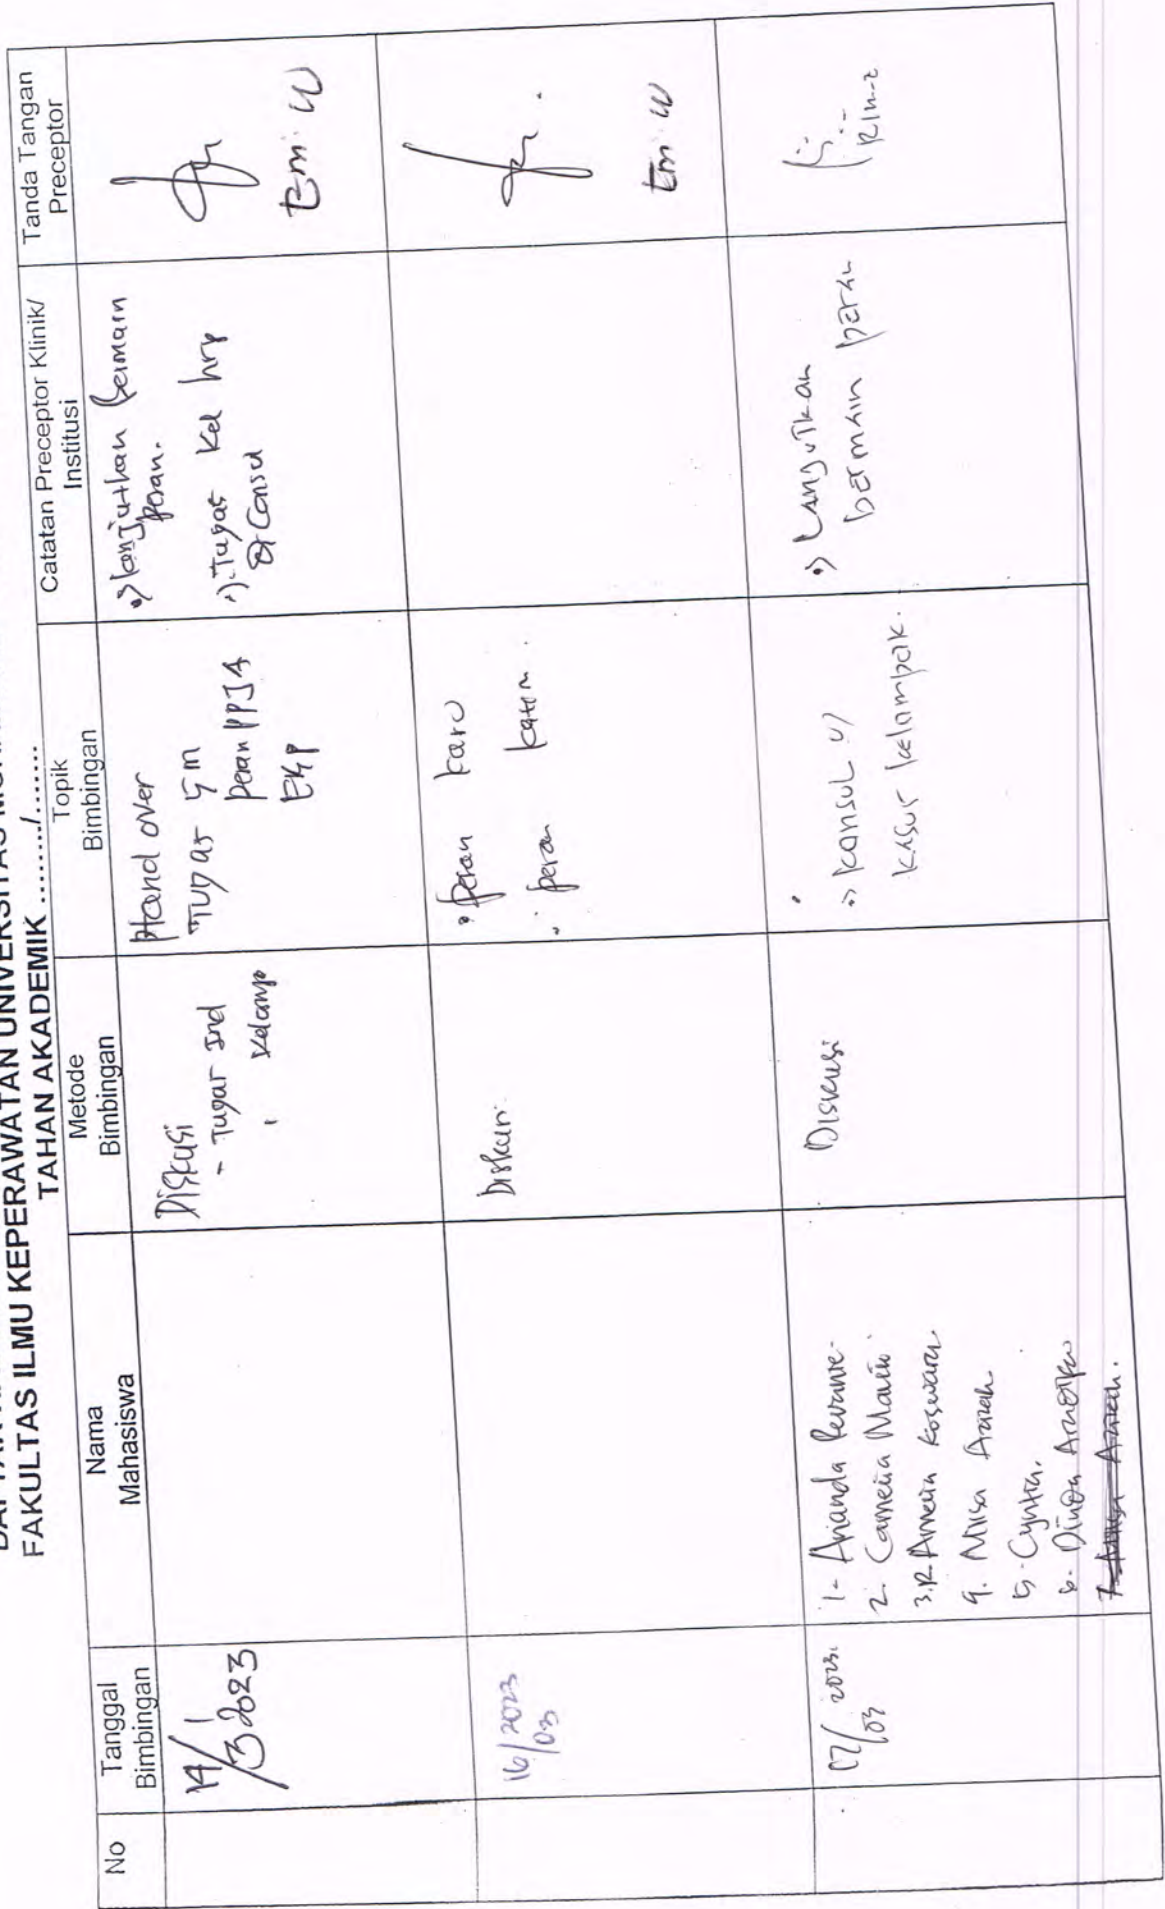 FAKULTAS ILMU KEPERAWATAN UNIVERSITAS
TAHAN AKADEMIK ........./.......
No
Tanggal
Bimbingan
Nama
Mahasiswa
Metode
Bimbingan
Topik
Bimbingan
Catatan Preceptor Klinik/
Institusi
Tanda Tangan
Preceptor
14/3 2023
Diskusi
- Tugas Ind
Kelomp
Hand over
Tugas
peran PPJA
Lanjutkan bermain
peran.
Tugas Kel
Consul
Emi W
16/2023
03
Diskusi
peran karo
peran katim.
Emi W
17/ 2023
03
1- Ananda
2. Camelia
3. R Amelia Koswara
4. Nisa Azizah
5- Cyntia.
6- Dinda
Diskusi
Konsul
kasus kelompok.
Langutkan
bermain peran